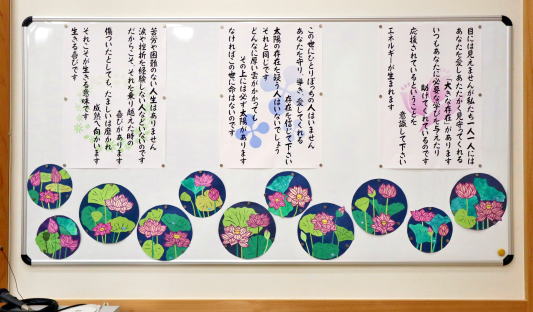 目には見えませんが私たち一人一人には
あなたを愛しあたたかく見守ってくれる
「大きな存在」があります
いつもあなたに必要な学びを与えたり
助けてくれているのです
応援されているということを
意識して下さい
エネルギーが生まれます
この世にひとりぼっちの人はいません
あなたを守り、導き、愛してくれる
存在を信じて下さい
太陽の存在を疑う人はいないでしょう
それと同じです
どんなに厚い雲がかかっても
その上には必ず太陽があります
なければこの世に命はないのです
苦労や困難のない人生はありません
涙や挫折を経験しない人などいないのです
だからこそ、それを乗り越えた時の
喜びがあります
傷ついたとしても、たましいは磨かれ
成熟へ向かいます
それこそが生きる意味です
生きる喜びです